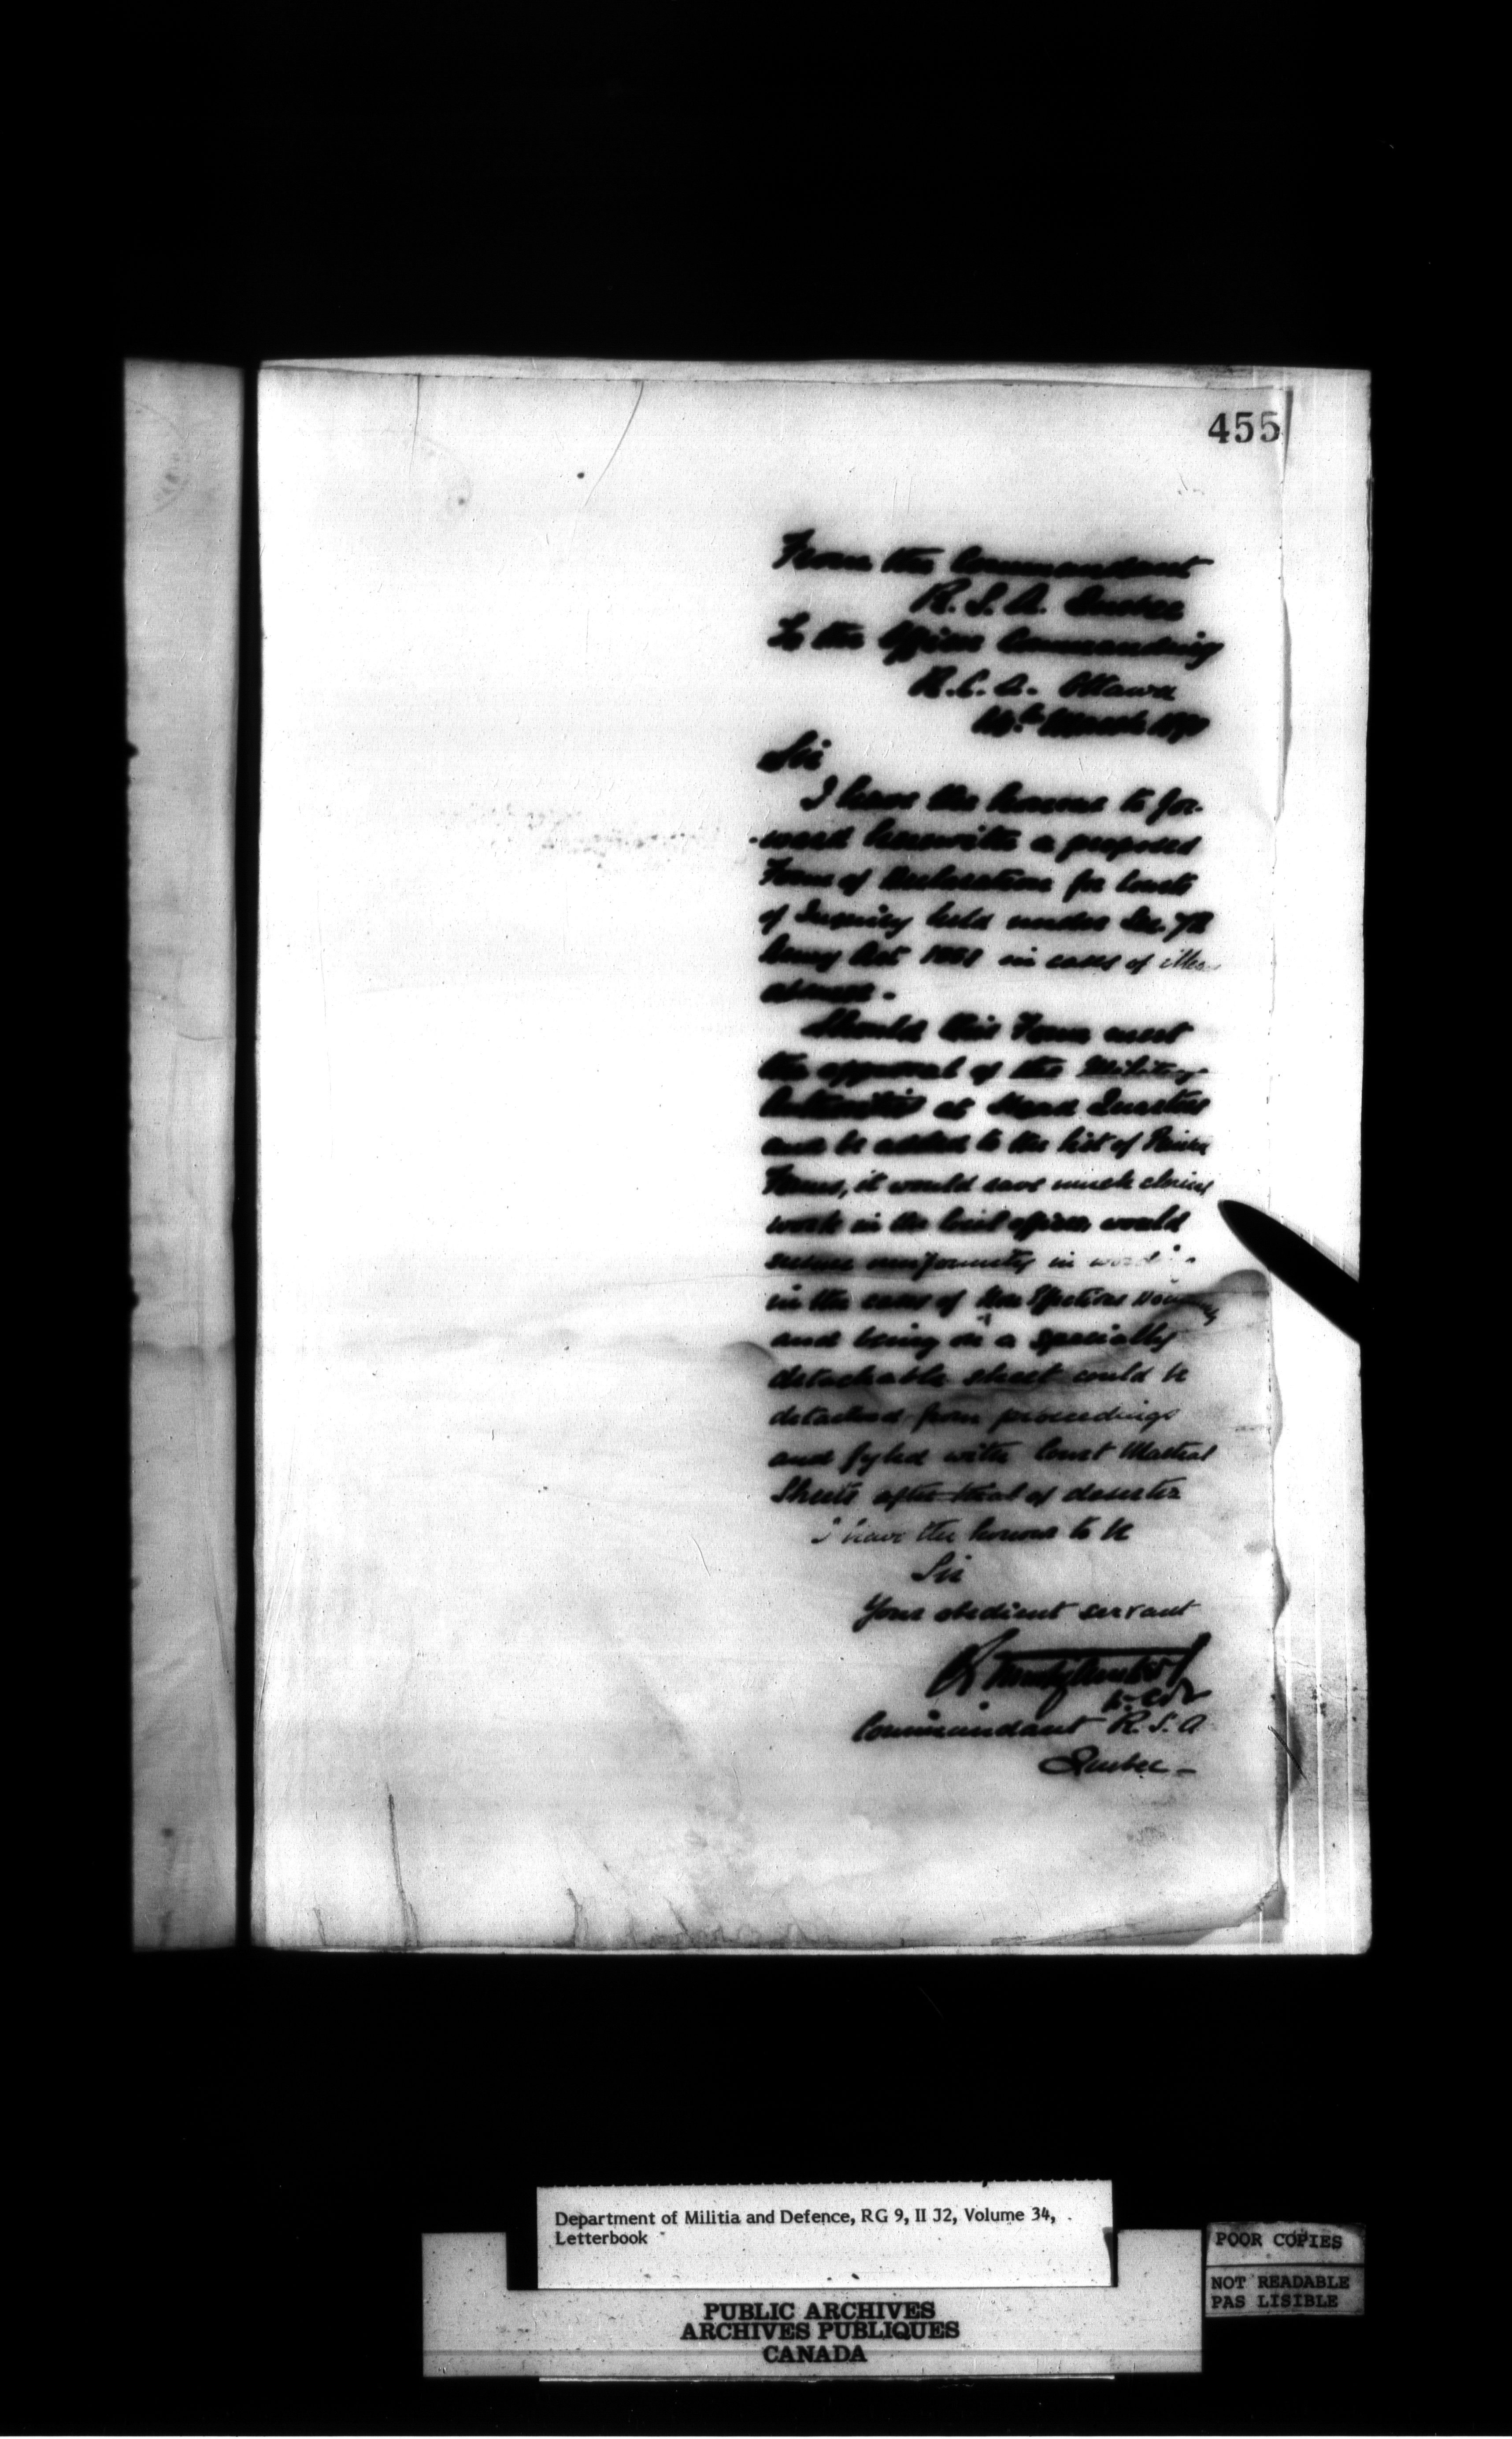 455
From the Commandant
R. S. A. Quebec
To the Officer Commanding
R. C. A. Ottawa
March
Sir
I have the honour to for-
-ward herewith a proposed
Form of Declaration for Courts
of Inquiry held under Sec. 72
Army Act 1881 in cases of
absence -
Should this Form meet
the approval of the Military
Authorities at Head Quarters
and be added to the list of
Forms, it would save much
work in the offices, would
secure uniformity in
in the cases of Non Effective
and being on a specially
detachable sheet could be
detached from proceedings
and fyled with Court Martial
Sheets after trial of deserter
I have the honour to be
Sir
Your obedient servant
Commandant R. S. A
Quebec -
Department of Militia and Defence, RG 9, II J2, Volume 34,
Letterbook
POOR COPIES
NOT READABLE
PAS LISIBLE
PUBLIC ARCHIVES
ARCHIVES PUBLIQUES
CANADA